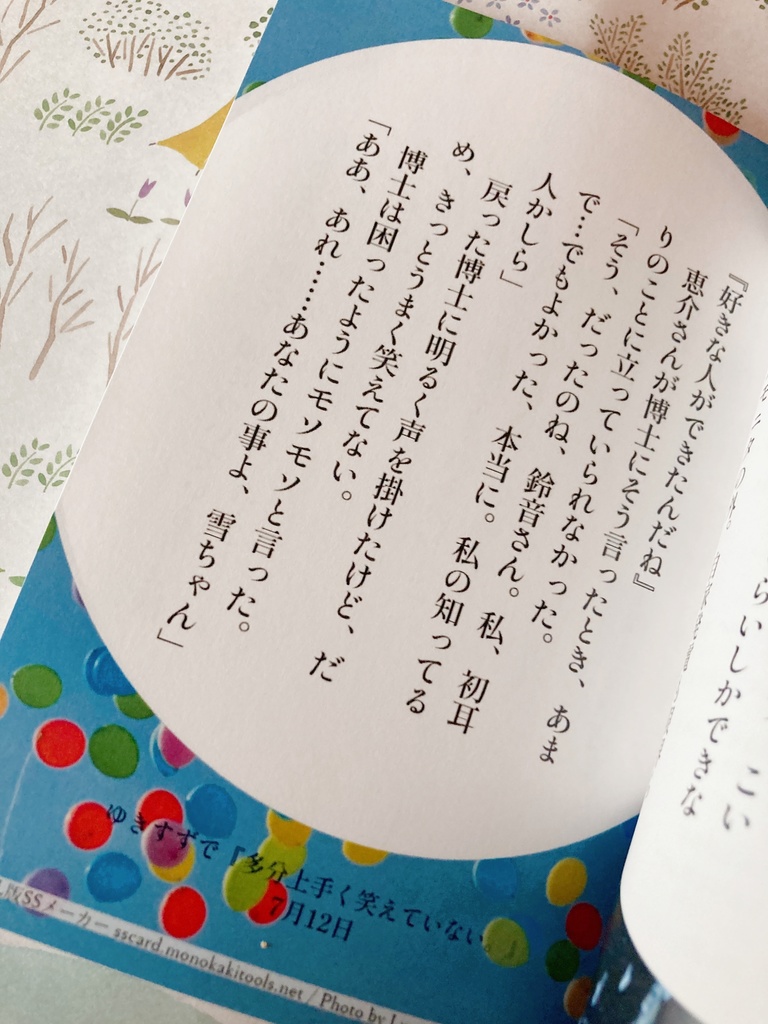 『好きな人ができたんだね』
恵介さんが博士にそう言ったとき、あま
りのことに立っていられなかった。
「そう、だったのね、鈴音さん。私、初耳
で…でもよかった、本当に。私の知ってる
人かしら」
戻った博士に明るく声を掛けたけど、だ
め、きっとうまく笑えてない。
博士は困ったようにモソモソと言った。
「ああ、あれ……あなたの事よ、雪ちゃん」
ゆきすずで『多分上手く笑えていない
7月12日
版SSメーカー sscard.monokakitools.net / Photo by
らいしかできな
こい